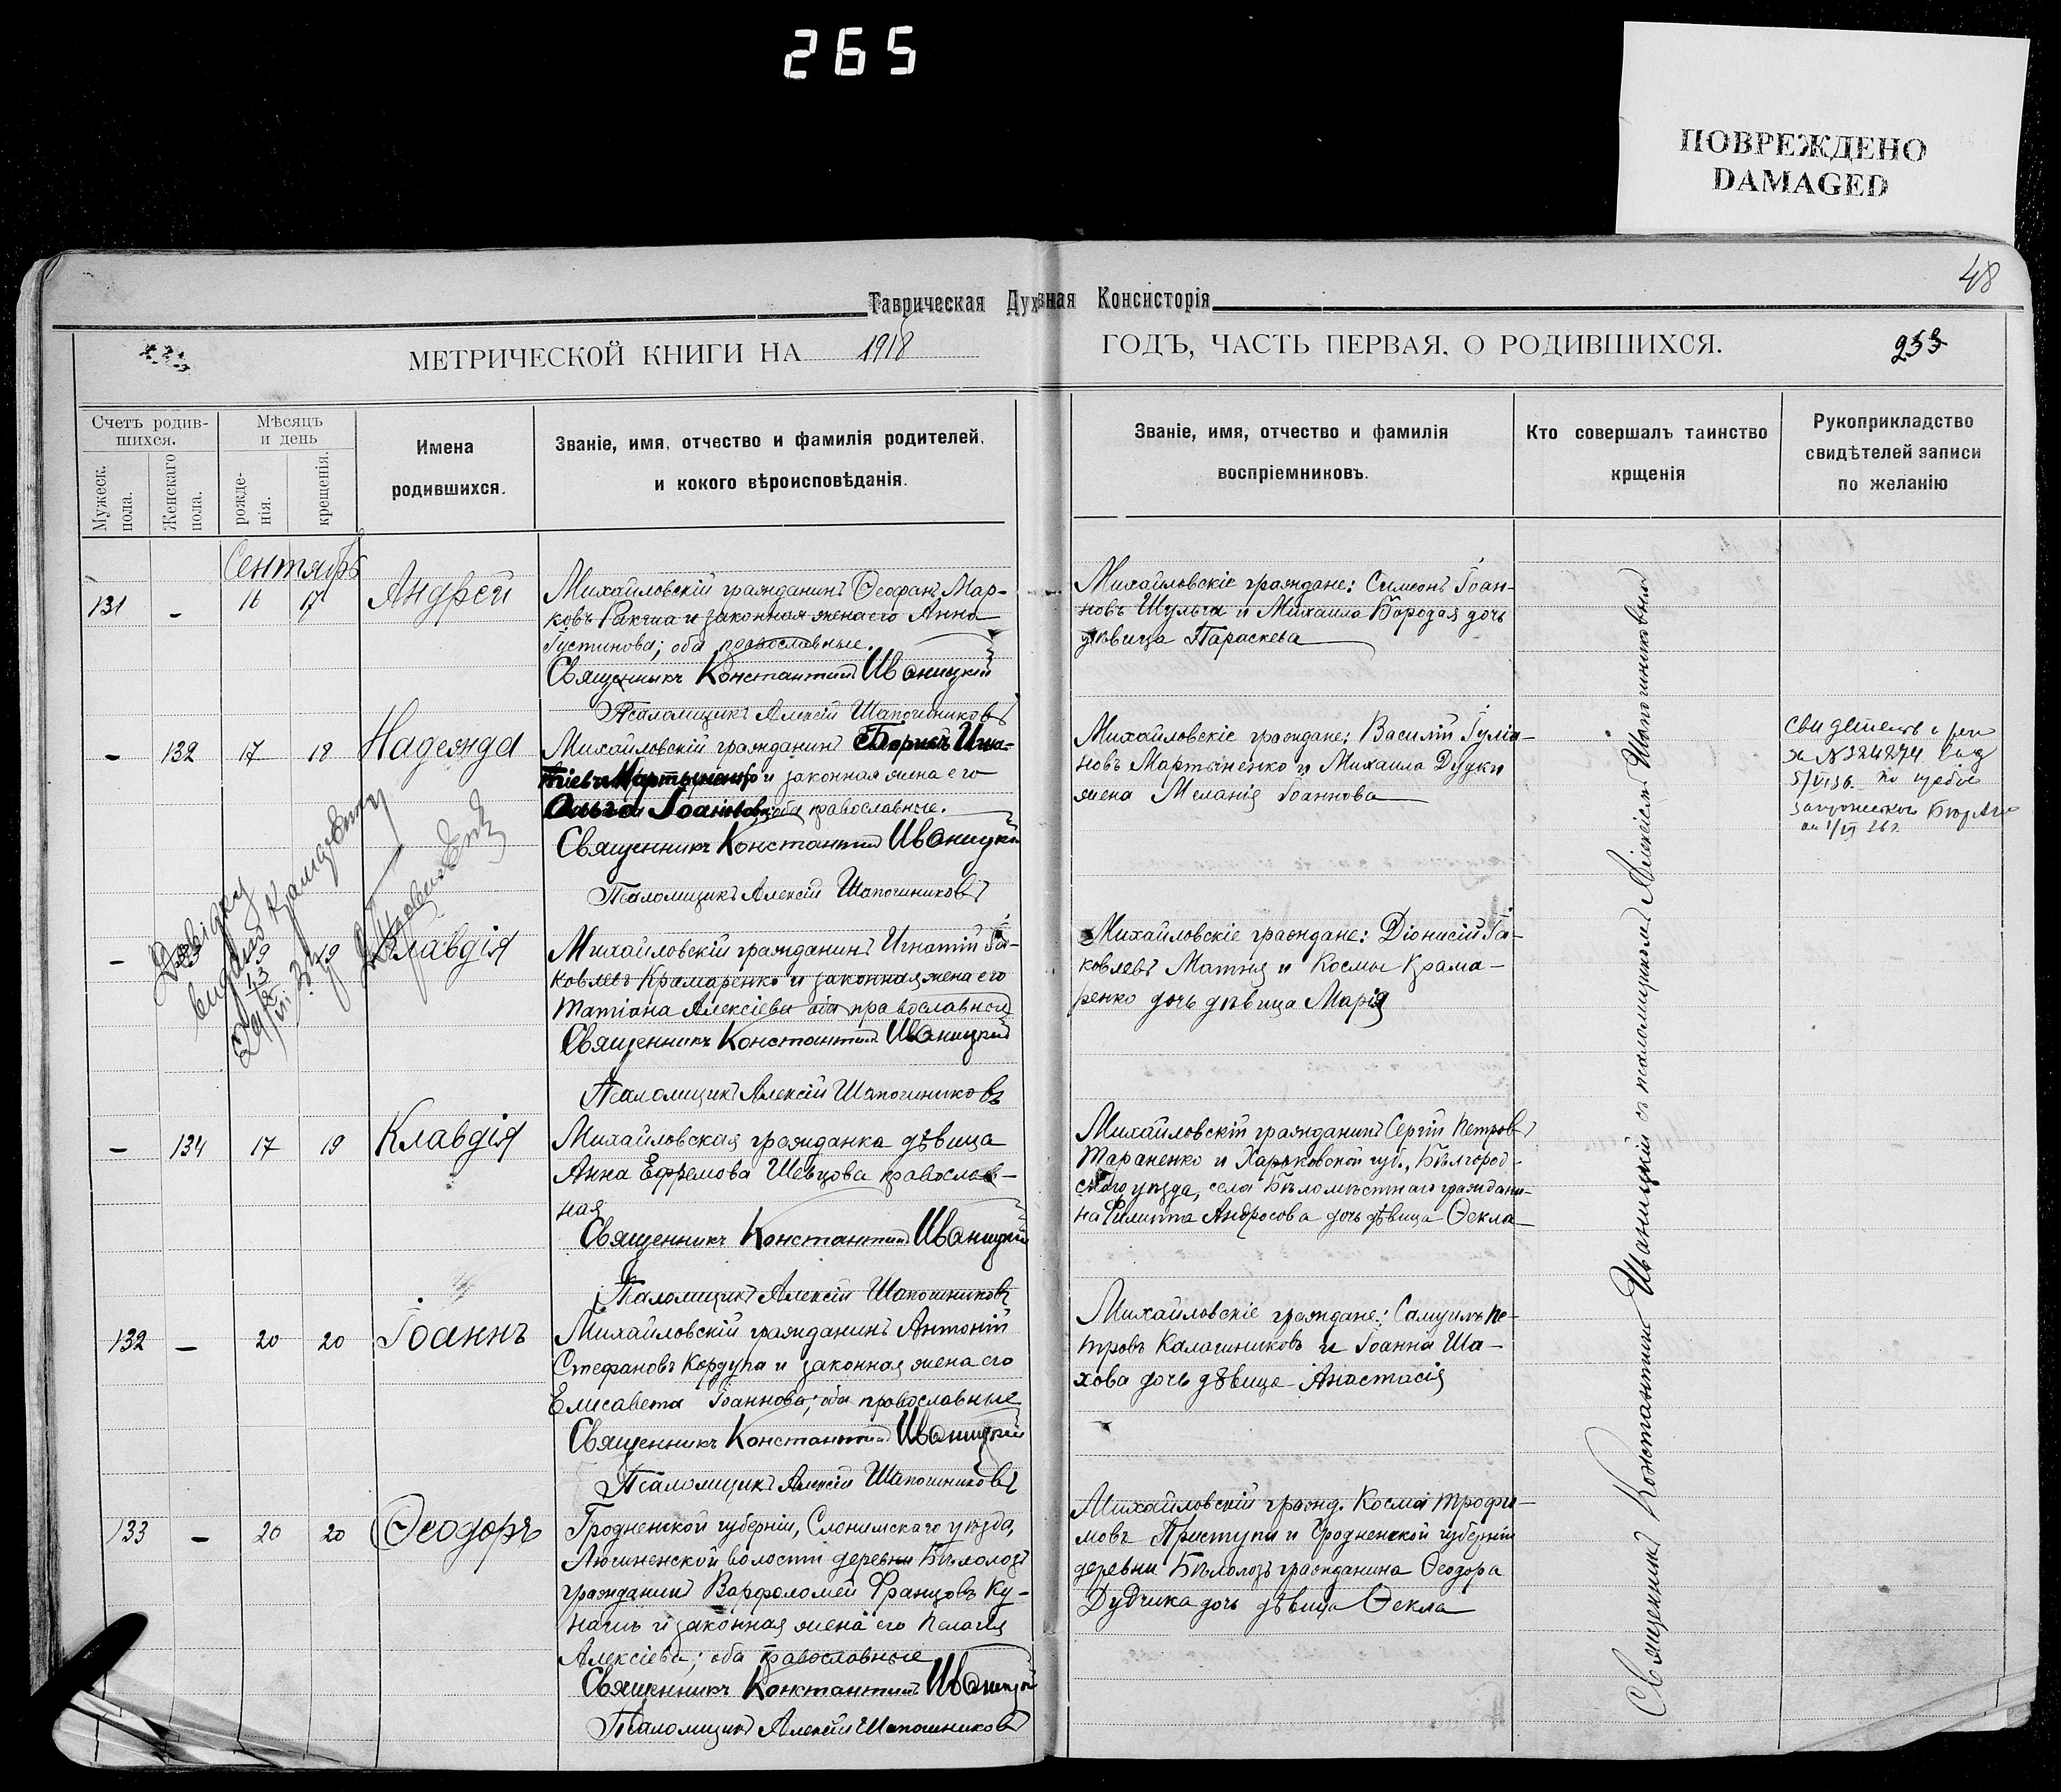 265
ПОВРЕЖДЕНО
DAMAGED
48
Таврическая Духовная Консисторія
МЕТРИЧЕСКОЙ КНИГИ НА 1918 ГОДЪ, ЧАСТЬ ПЕРВАЯ, О РОДИВШИХСЯ.
253
Счетъ родив-
шихся.
Мужеск. пола.
Женскаго пола.
Мѣсяцъ
и день
рожде-
нія.
крещенія.
Имена
родившихся.
Званіе, имя, отчество и фамилія родителей,
и кокого вѣроисповѣданія.
Званіе, имя, отчество и фамилія
воспріемниковъ.
Кто совершалъ таинство
крщенія
Рукоприкладство
свидѣтелей записи
по желанію
Сентябрь
131 – 16 17 Андрей
Михайловскій гражданинъ Ѳеофанъ Мар-
ковъ и законная жена его Анна
Іустинова; оба православные.
Священникъ Константинъ Иваницкій
Псаломщикъ Алексій Шапошниковъ
Михайловскіе граждане: Симеонъ Іоан-
новъ Шульга и Михаила Бородая дочь
дѣвица Параскева
– 132 17 18 Надежда
Михайловскій гражданинъ Борисъ Игна-
тіевъ Мартыненко и законная жена его
Ольга Іоаннова; оба православные.
Священникъ Константинъ Иваницкій
Псаломщикъ Алексій Шапошниковъ
Михайловскіе граждане: Василій Іуліа-
новъ Мартыненко и Михаила Дудки
жена Меланія Іоаннова
– 133 19 Клавдія
Михайловскій гражданинъ Игнатій Іа-
ковлевъ Крамаренко и законная жена его
Татіана Алексіева оба православные
Священникъ Константинъ Иваницкій
Псаломщикъ Алексій Шапошниковъ
Михайловскіе граждане: Діонисій Іа-
ковлевъ Матня и Космы Крама-
ренко дочь дѣвица Марія
– 134 17 19 Клавдія
Михайловская гражданка дѣвица
Анна Ефремова Шевцова православ-
ная
Священникъ Константинъ Иваницкій
Псаломщикъ Алексій Шапошниковъ
Михайловскій гражданинъ Сергій Петровъ
Тараненко и Харьковской губ., Бѣлгород-
скаго уѣзда, села Бѣломѣстнаго граждани-
на Филиппа Андросова дочь дѣвица Ѳекла
132 – 20 20 Іоаннъ
Михайловскій гражданинъ Антоній
Стефановъ Кордупа и законная жена его
Елисавета Іоаннова; оба православные
Священникъ Константинъ Иваницкій
Псаломщикъ Алексій Шапошниковъ
Михайловскіе граждане: Самуилъ Пе-
тровъ Калашниковъ и Іоанна Ша-
хова дочь дѣвица Анастасія
133 – 20 20 Ѳеодоръ
Гродненской губерніи, Слонимскаго уѣзда,
волости деревни
гражданинъ Варфоломей Францовъ Ку-
нашъ и законная жена его Пелагія
Алексіева; оба православные
Священникъ Константинъ Иваницкій
Псаломщикъ Алексій Шапошниковъ
Михайловскій гражд. Косма Трофи-
мовъ Приступа и Гродненской губерніи
деревни гражданина Ѳеодора
Дудчика дочь дѣвица Ѳекла
Священникъ Константинъ Иваницкій съ псаломщикомъ Алексіемъ Шапошниковымъ